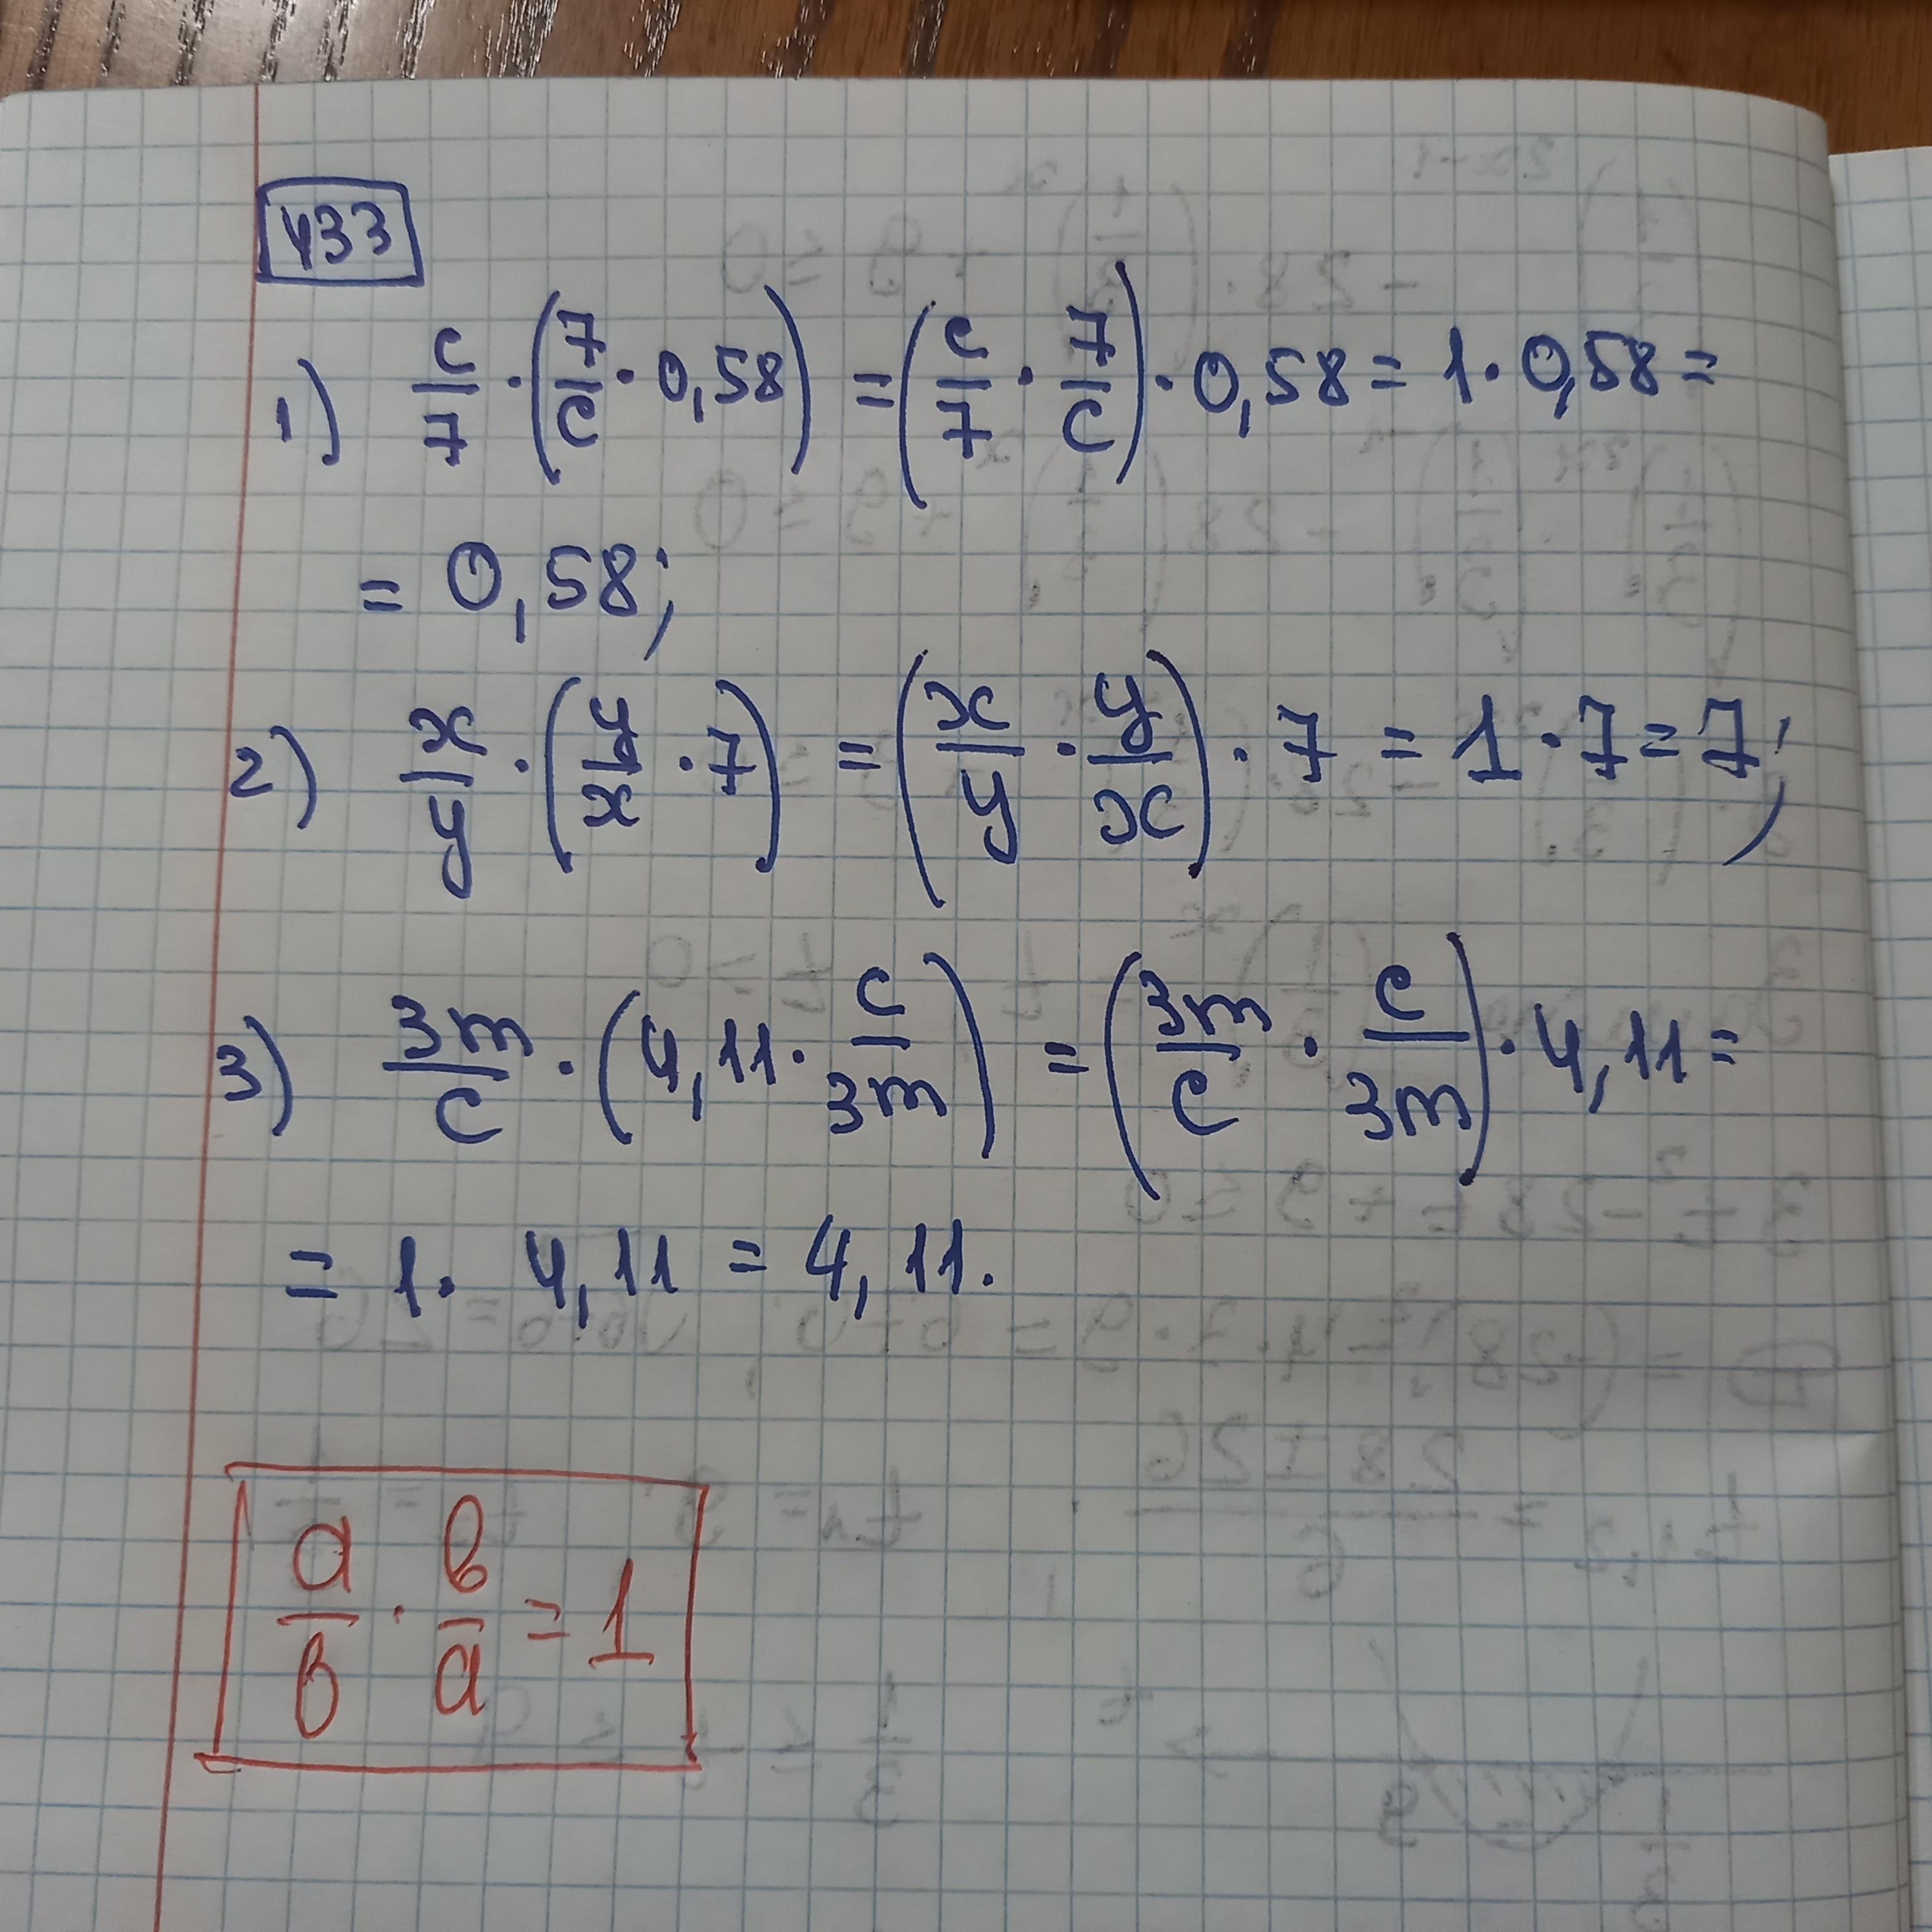 433
1) c/7 · (7/c · 0,58) = (c/7 · 7/c) · 0,58 = 1 · 0,58 =
= 0,58;
2) x/y · (y/x · 7) = (x/y · y/x) · 7 = 1 · 7 = 7;
3) 3m/c · (4,11 · c/3m) = (3m/c · c/3m) · 4,11 =
= 1 · 4,11 = 4,11.
a/b · b/a = 1